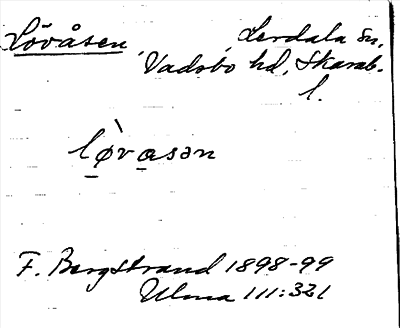 Lövåsen, Lerdala sn,
Vadsbo hd, Skarab.
l.
lø̀vasən
F. Bergstrand 1898-99
Ulma 111:321